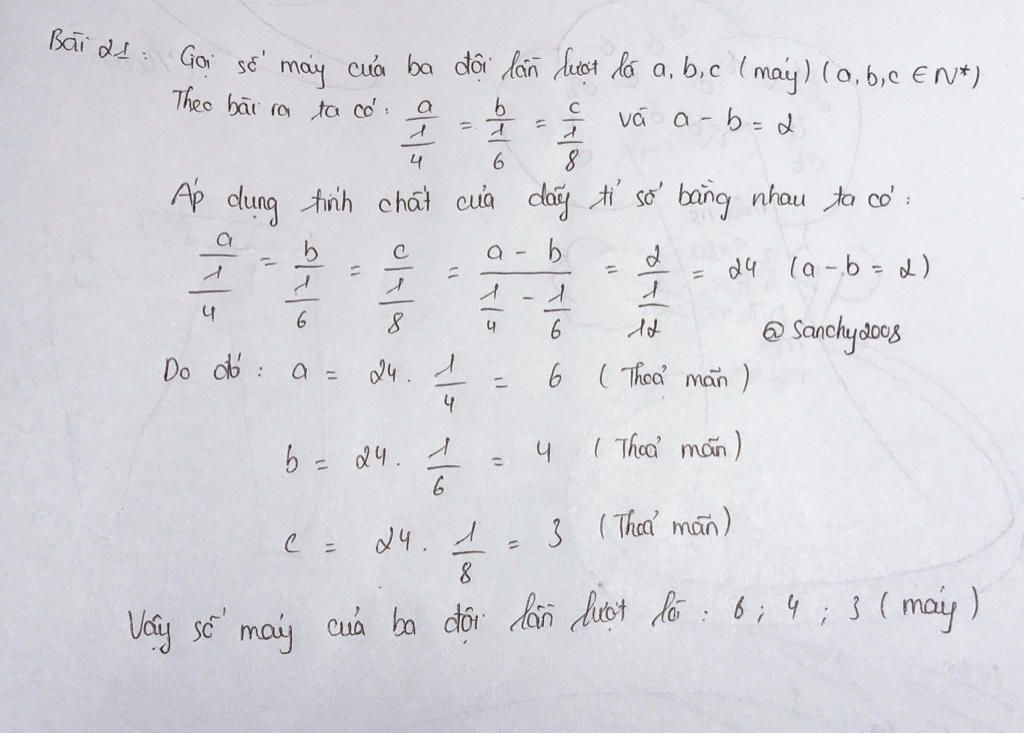 Bài 21: Gọi số máy của ba đội lần lượt là a, b, c (máy) (a, b, c ∈ N*)
Theo bài ra ta có: a/(1/4) = b/(1/6) = c/(1/8) và a - b = 2
Áp dụng tính chất của dãy tỉ số bằng nhau ta có:
a/(1/4) = b/(1/6) = c/(1/8) = (a - b)/(1/4 - 1/6) = 2/(1/12) = 24 (a - b = 2)
@Sanchy2008
Do đó: a = 24 . 1/4 = 6 (Thoả mãn)
b = 24 . 1/6 = 4 (Thoả mãn)
c = 24 . 1/8 = 3 (Thoả mãn)
Vậy số máy của ba đội lần lượt là: 6; 4; 3 (máy)